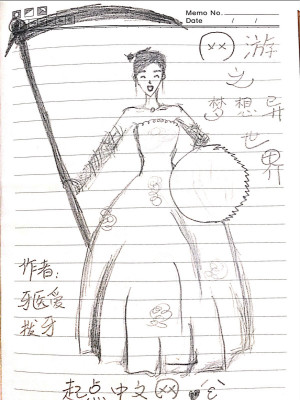 Memo No.
Date / /
(xx) 游
之
梦想异
世
界
作者:
牙医爱
拔牙
起点中文(xx)